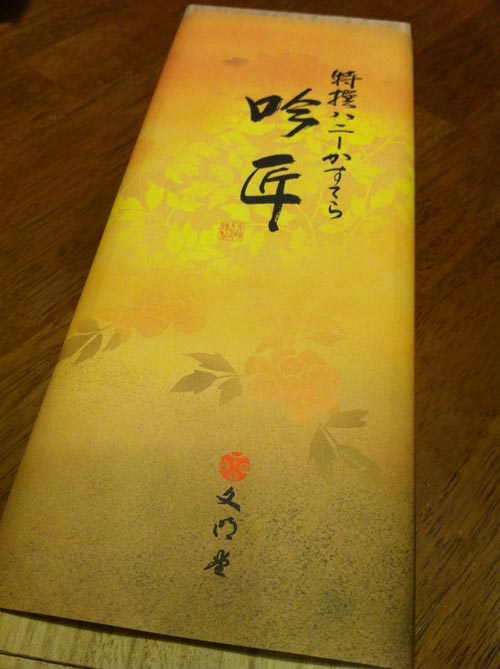 特撰ハニーかすてら
吟匠
文明堂